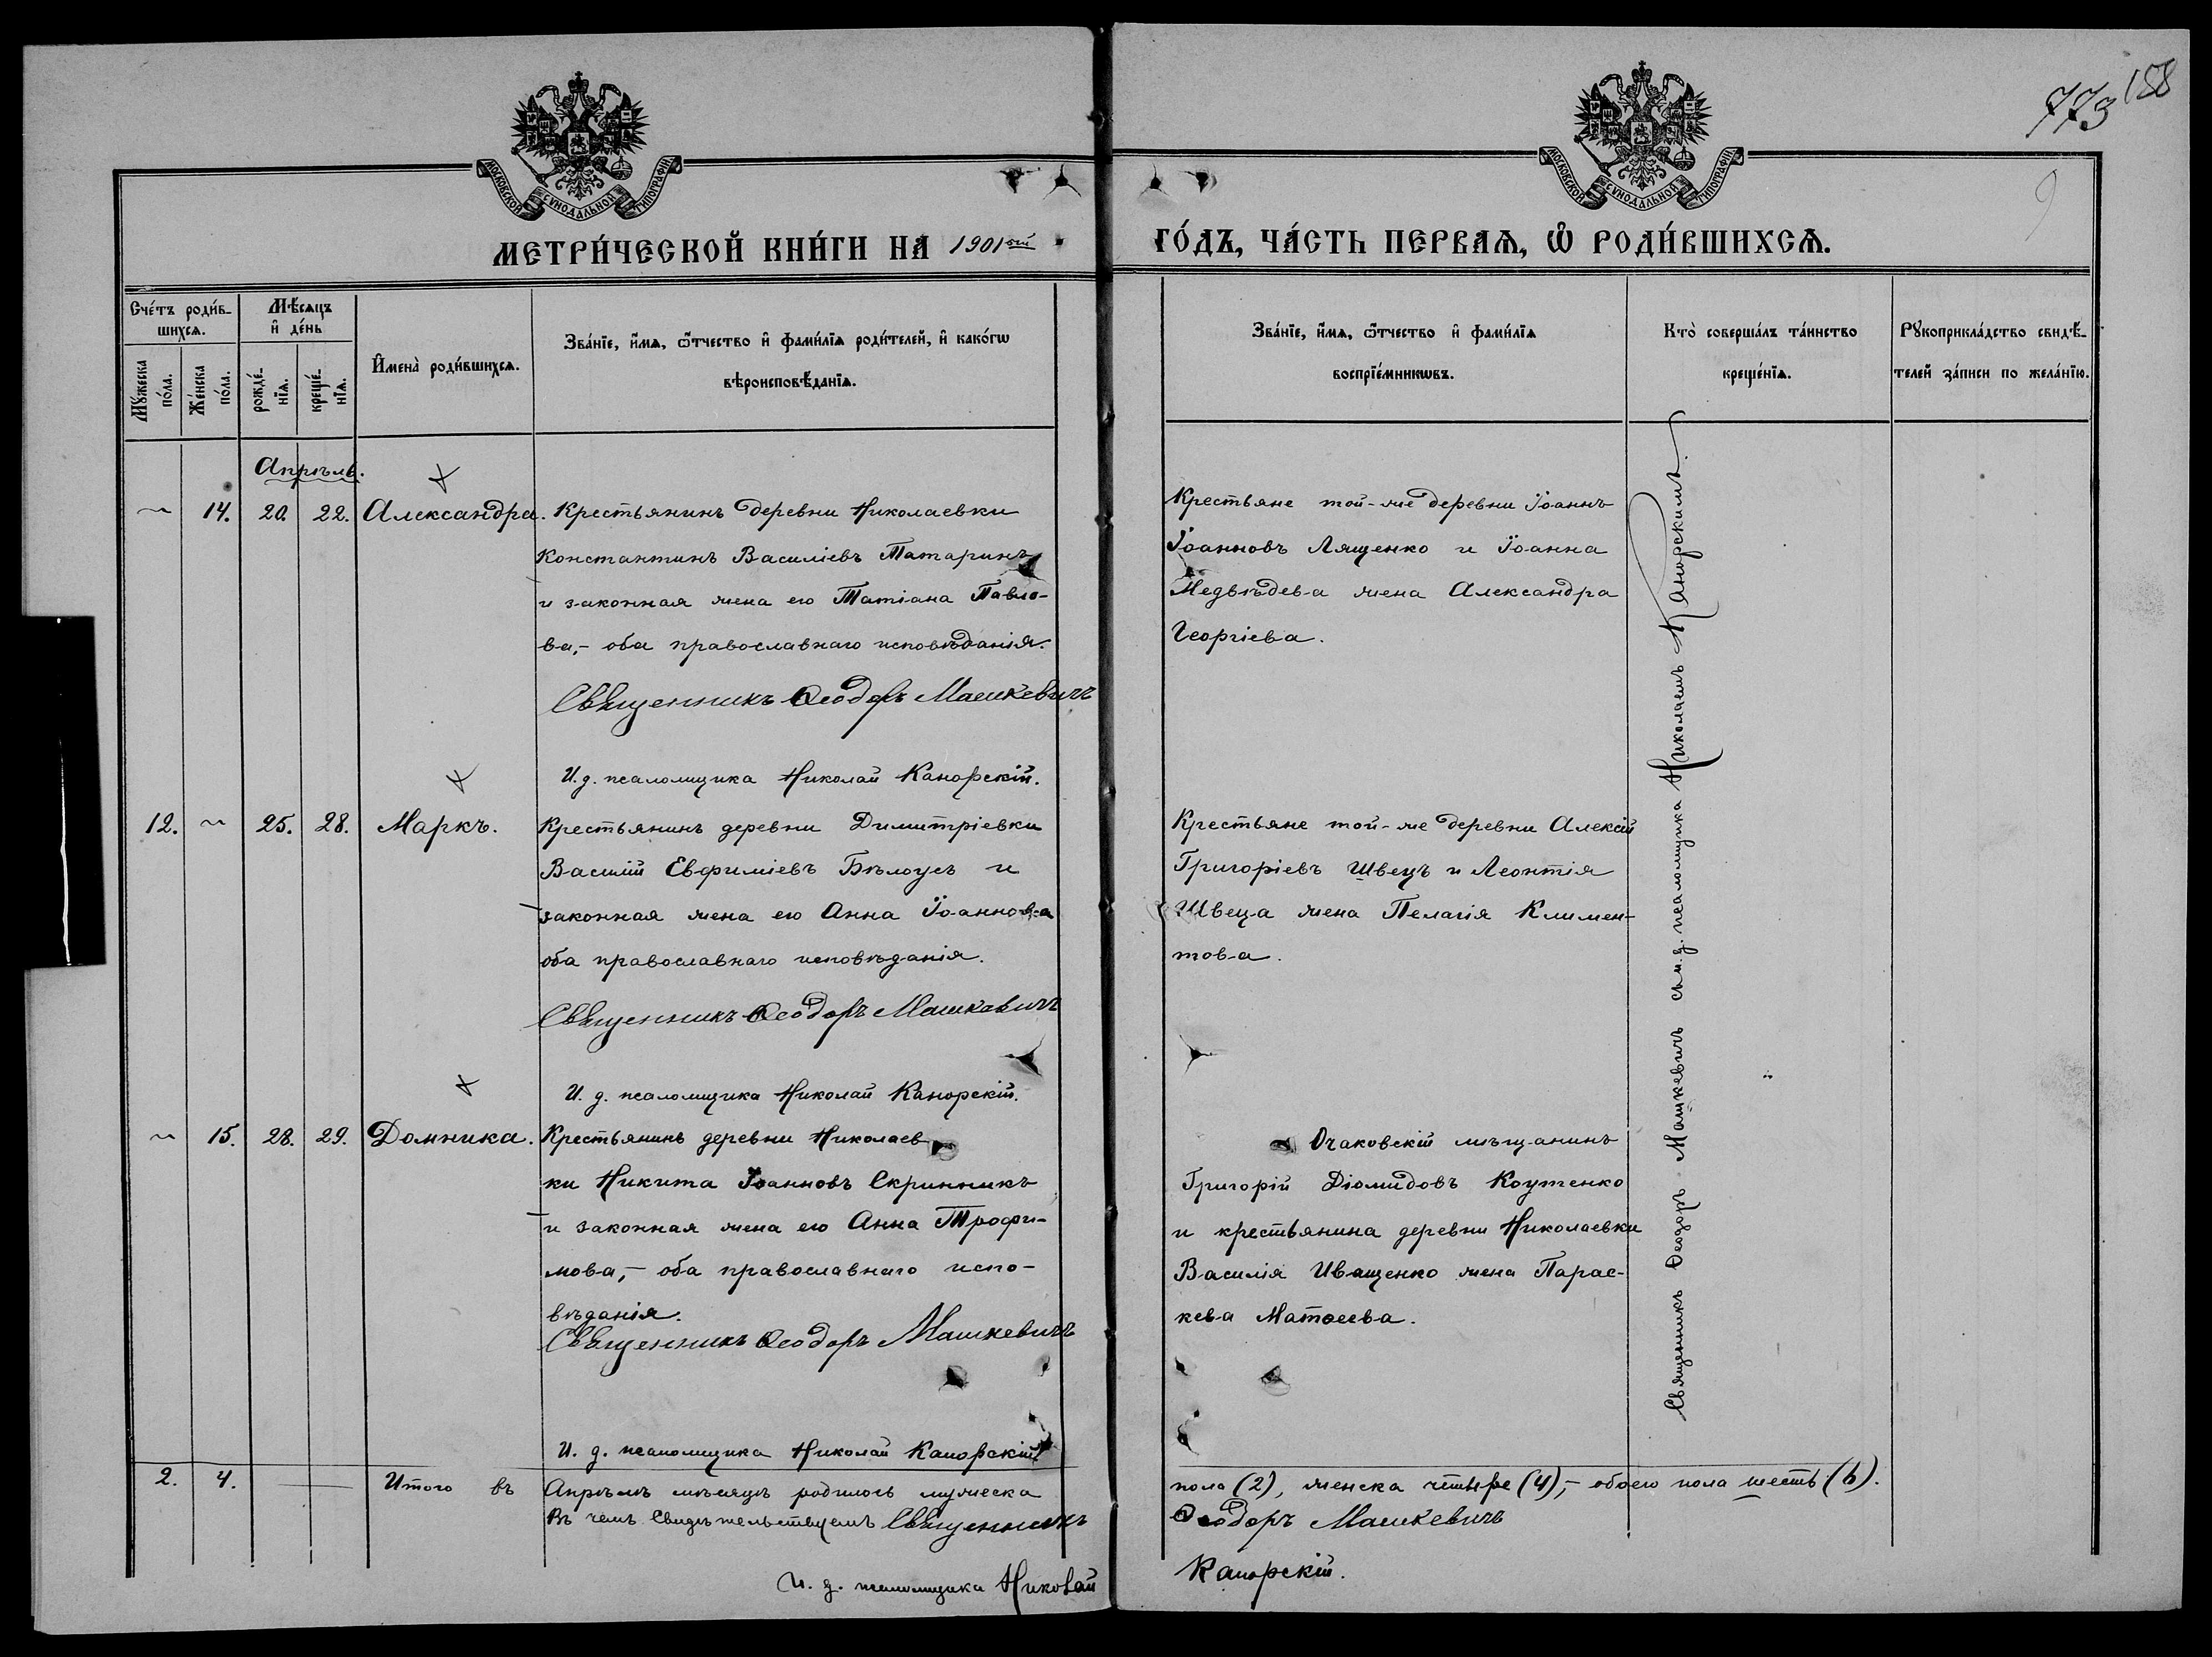 773 158
9
МОСКОВСКОЙ СѴНОДАЛЬНОЙ ТИПОГРАФІИ
МОСКОВСКОЙ СѴНОДАЛЬНОЙ ТИПОГРАФІИ
МЕТРИ́ЧЕСКОЙ КНИ́ГИ НА 1901ый ГО́ДЪ, ЧА́СТЬ ПЕРВАѦ, Ѡ҆ РОДИ́ВШИХСѦ.
Сче́тъ роди́в-
шихсѧ.
Мꙋ́жеска
по́ла.
Же́нска
по́ла.
Мѣ́сѧцъ
и҆ де́нь
рожде́-
нїѧ.
креще́-
нїѧ.
И҆мена̀ роди́вшихсѧ.
Зва́нїе, и҆́мѧ, ѻ҆́тчество и҆ фами́лїѧ роди́телей, и҆ како́гѡ
вѣроисповѣ́данїѧ.
Зва́нїе, и҆́мѧ, ѻ҆́тчество и҆ фами́лїѧ
воспрїе́мникѡвъ.
Кто̀ соверша́лъ та́инство
креще́нїѧ.
Рꙋкоприкла́дство свидѣ́-
телей за́писи по жела́нїю.
Апрѣль.
~ 14. 20. 22. Александра. Крестьянинъ деревни Николаевки
Константинъ Василіевъ Татаринъ
и законная жена его Татіана Павло-
ва,- оба православнаго исповѣданія.
Священникъ Ѳеодоръ Машкевичъ
И. д. псаломщика Николай Канорскій.
Крестьяне той-же деревни Іоаннъ
Іоанновъ Лященко и Іоанна
Медвѣдева жена Александра
Георгіева.
12. ~ 25. 28. Маркъ. Крестьянинъ деревни Димитріевки
Василій Евфиміевъ Бѣлоусъ и
законная жена его Анна Іоаннова
оба православнаго исповѣданія.
Священникъ Ѳеодоръ Машкевичъ
И. д. псаломщика Николай Канорскій.
Крестьяне той-же деревни Алексій
Григоріевъ Швецъ и Леонтія
Швеца жена Пелагія Климен-
това.
~ 15. 28. 29. Домника. Крестьянинъ деревни Николаев-
ки Никита Іоанновъ Скринникъ
и законная жена его Анна Трофи-
мова,- оба православнаго испо-
вѣданія.
Священникъ Ѳеодоръ Машкевичъ
И. д. псаломщика Николай Канорскій
Очаковскій мѣщанинъ
Григорій Діомидовъ Коутенко
и крестьянина деревни Николаевки
Василія Иващенко жена Парас-
кева Матѳеева.
Священникъ Ѳеодоръ Машкевичъ съ и. д. псаломщика Николаемъ Канорскимъ.
2. 4. Итого въ Апрѣлѣ мѣсяцѣ родилось мужеска пола (2), женска четыре (4),- обоего пола шесть (6).
Въ чемъ свидѣтельствуемъ Священникъ Ѳеодоръ Машкевичъ
И. д. псаломщика Николай Канорскій.